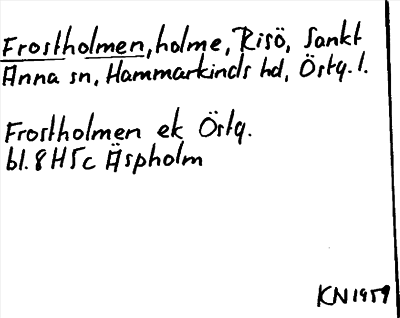 Frostholmen, holme, Risö, Sankt
Anna sn, Hammarkinds hd, Östg. l.
Frostholmen ek Östg.
bl. 8 H 5 c Äspholm
KN 1959